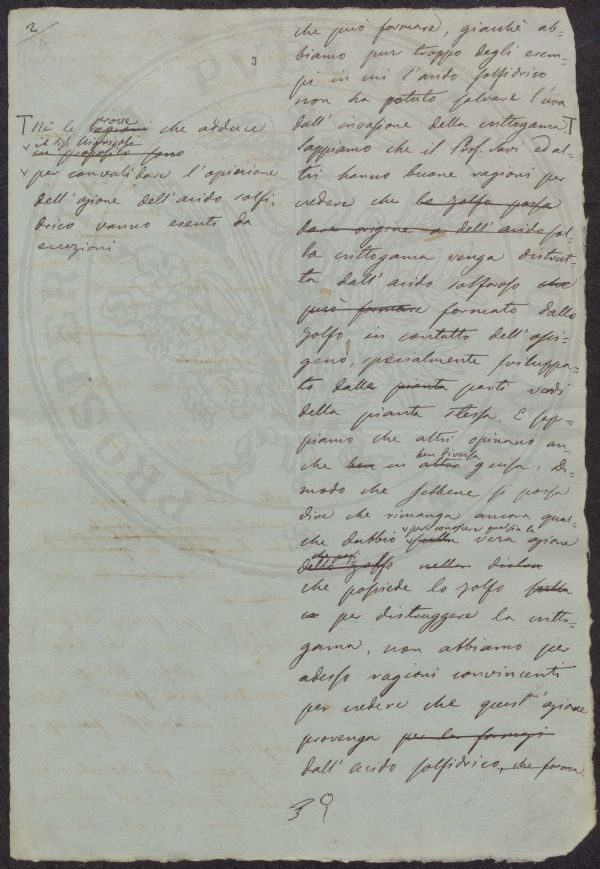 2/
3
che può formare, giacchè ab=
biamo pur troppo degli esem=
pi in cui l'acido solfidrico
non ha potuto salvare l'uva
dall'invasione della crittogama.
Sappiamo che il Prof. Savi ed al=
tri hanno buone ragioni per
credere che lo zolfo possa
dare origine a dell'acido sol
la crittogama venga distrut=
ta dall'acido solforoso che
può formare formato dallo
zolfo in contatto dell'ossi=
geno, specialmente sviluppa=
to dalle pianta parti verdi
della pianta stessa. E sap=
piamo che altri opinano an=
ben diversa
che ben in altra guisa: Di=
modo che sebbene si possa
dire che rimanga ancora qual=
per conoscere qual sia la
che dubbio sulla vera azione
che possi
dello zolfo nella distru
che possiede lo zolfo sulla
per distruggere la critto=
gama, non abbiamo per
adesso ragioni convincenti
per credere che quest'azione
provenga per la formazi
dall'acido solfidrico, che forma
Nè le ragioni che adduce
prove
in proposito sono
per convalidare l'opinione
dell'azione dell'acido solfi=
drico vanno esenti da
eccezioni
PVBLI
PROSTER